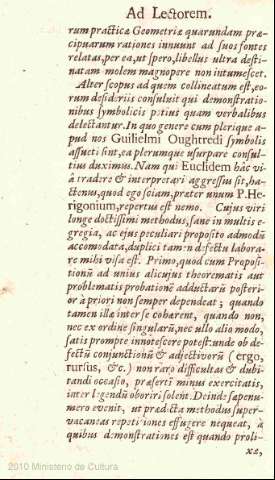 Ad Lectorem.
rum practicæ Geometriæ quarundam præ-
cipuarum rationes innuunt ad suos fontes
relatas, per ea, ut spero, libellus ultra desti-
natam molem magnopere non intumescet.
Alter scopus ad quem collineatum est, eo-
rum desideriis consuluit qui demonstratio-
nibus symbolicis potiùs quam verbalibus
delectantur. In quo genere cum plerique a-
pud nos Guilielmi Oughtredi symbolis
assueti sint, ea plerumque usurpare consul-
tius duximus. Nam qui Euclidem hâc vi-
â tradere & interpretari aggressus sit, ha-
ctenus, quod ego sciam, præter unum P. He-
rigonium, repertus est nemo. Cujus viri
longe doctissimi methodus, sane in multis e-
gregia, ac ejus peculiari proposito admodũ
accomodata, duplici tamen defectu labora-
re mihi visa est. Primo, quod cum Proposi-
tionũ ad unius alicujus theorematis aut
problematis probationẽ adductarũ posteri-
or à priori non semper dependeat; quando
tamen illæ inter se cohærent, quando non,
nec ex ordine singularũ, nec ullo alio modo,
satis prompte innotescere potest: unde ob de-
fectũ conjunctionũ & adjectiverũ (ergo,
rursus, &c.) non rarò difficultas & dubi-
tandi occasio, præserti minus exercitatis,
inter legendũ oboriri solent. Deinde sæpenu-
mero evenit, ut prædicta methodus super-
vacaneas repetitiones effugere nequeat, à
quibus demonstrationes est quando proli-
xæ,
2010 Ministerio de Cultura